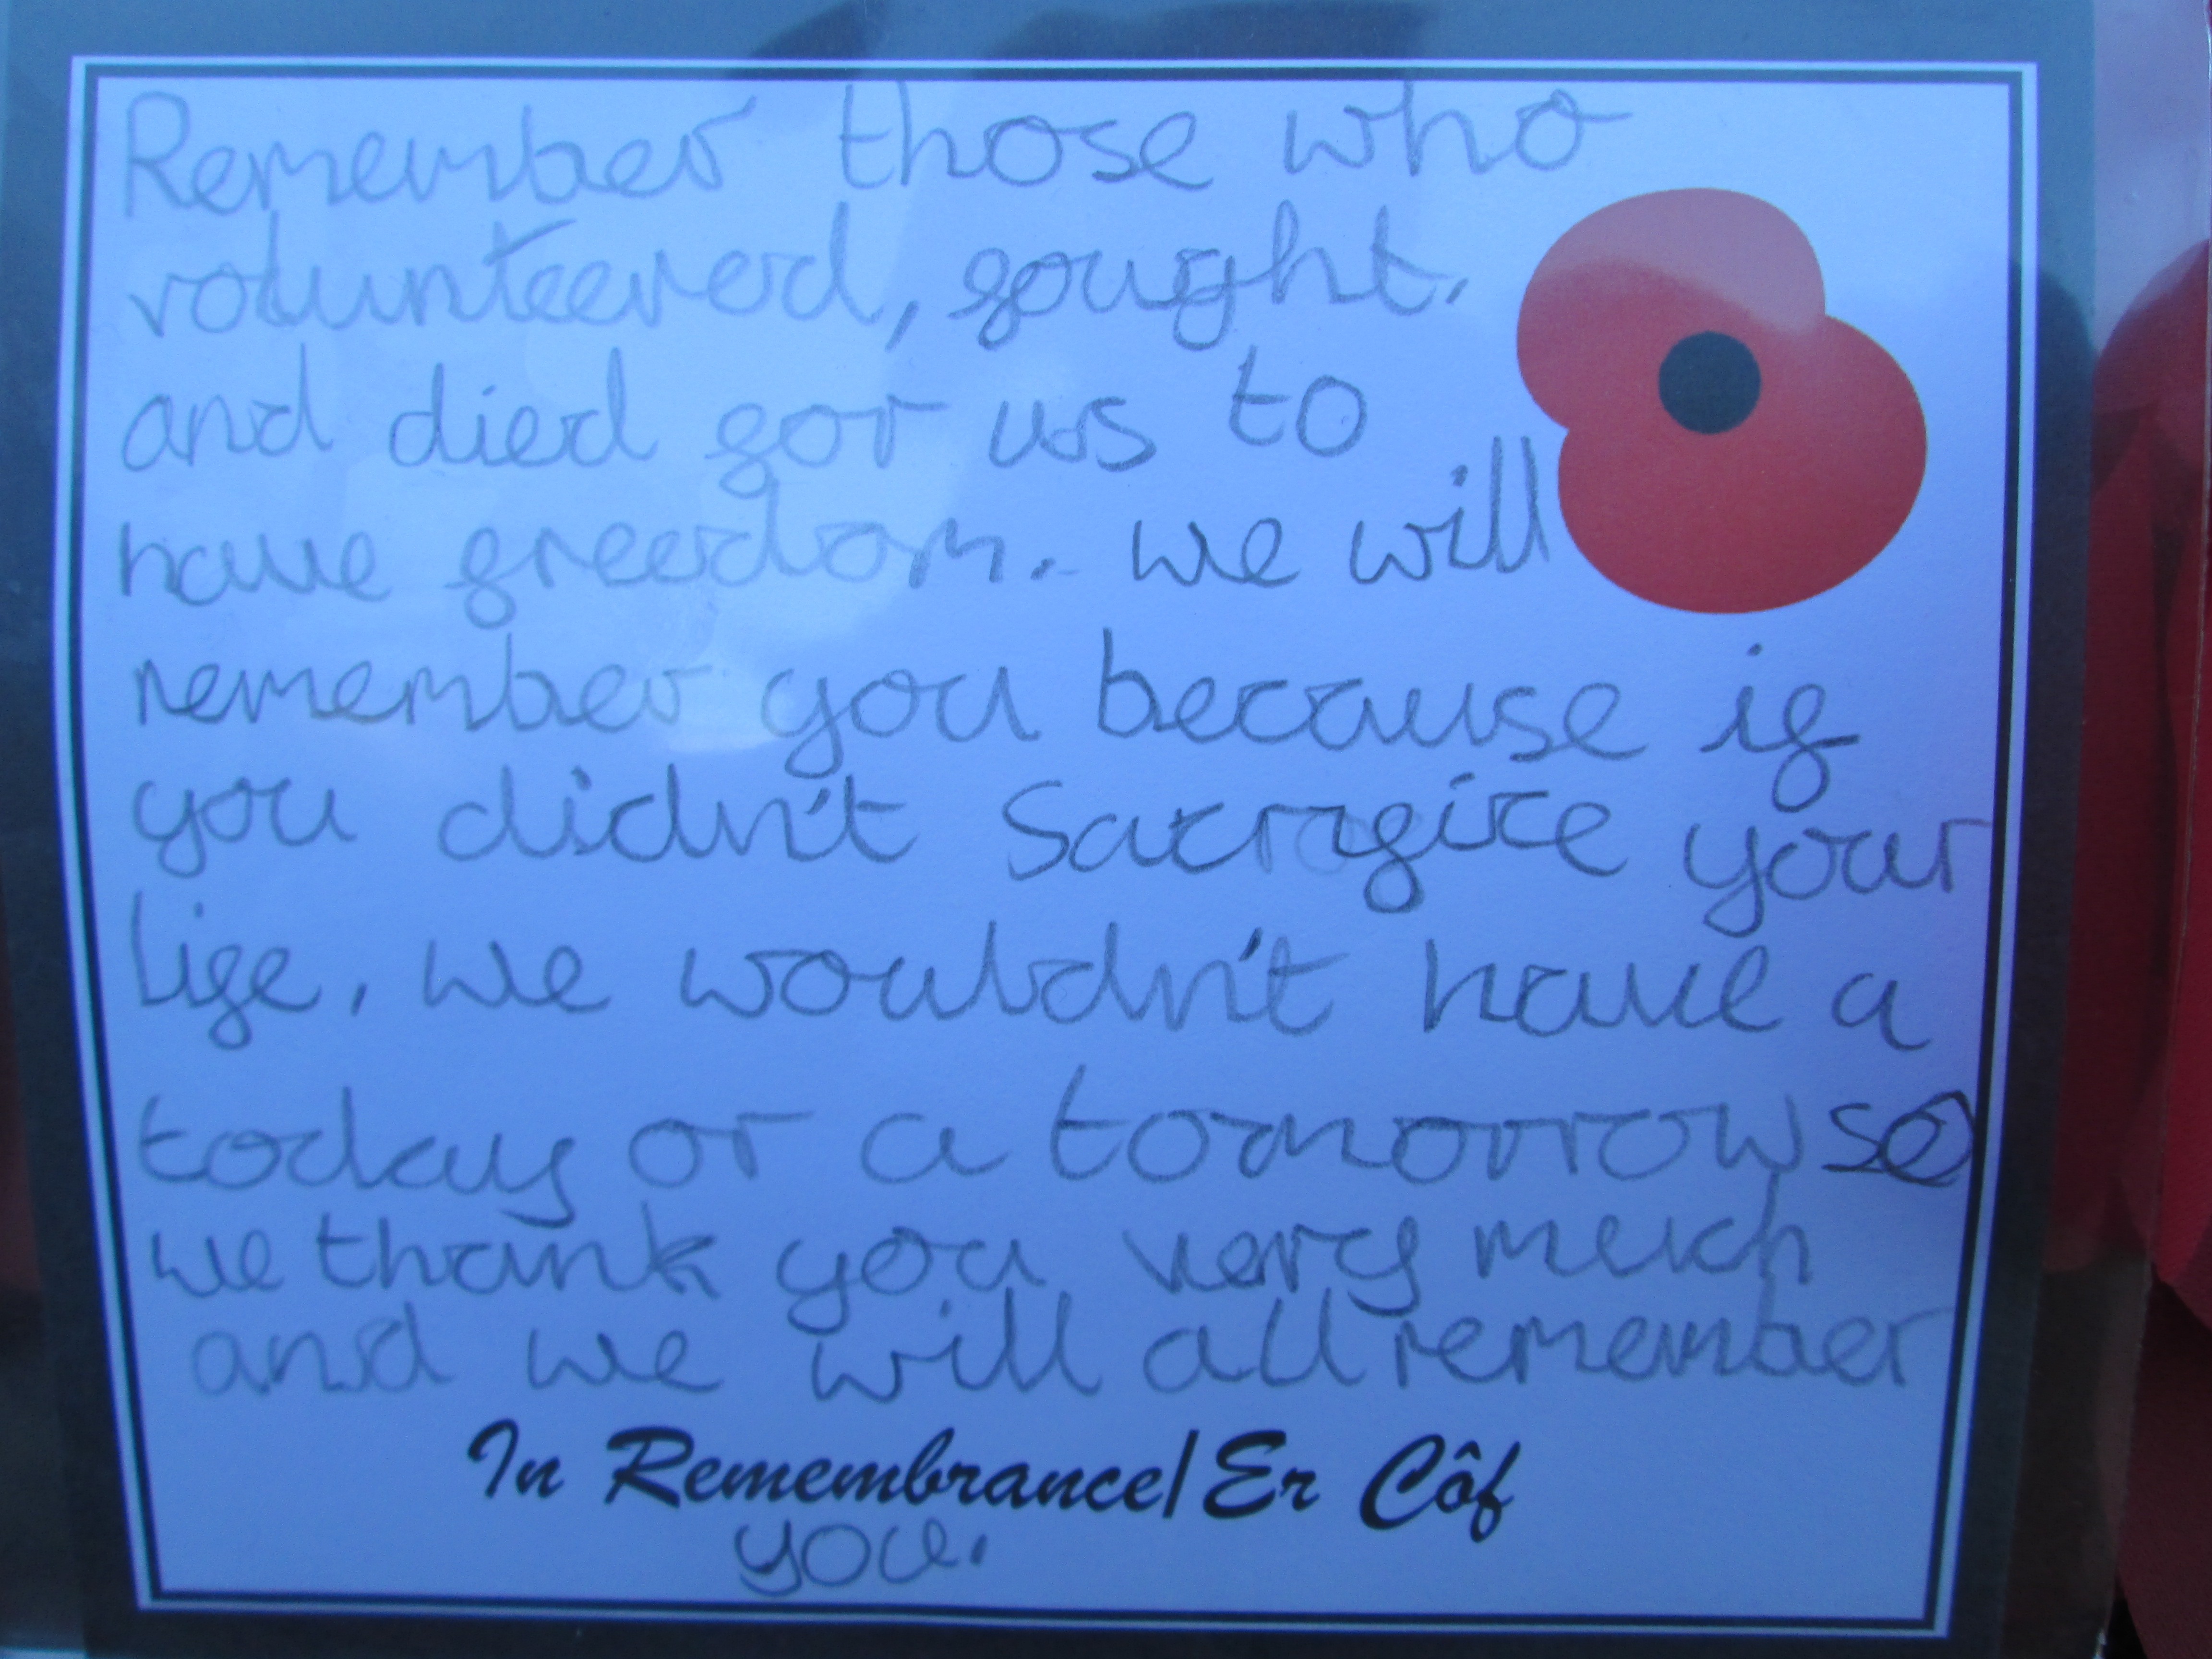 Remember those who
volunteered, fought,
and died for us to
have freedom. we will
remember you because if
you didn't Sacrifice your
life, we wouldn't have a
today or a tomorrow so
we thank you very much
and we will all remember
In Remembrance/Er Côf
you.